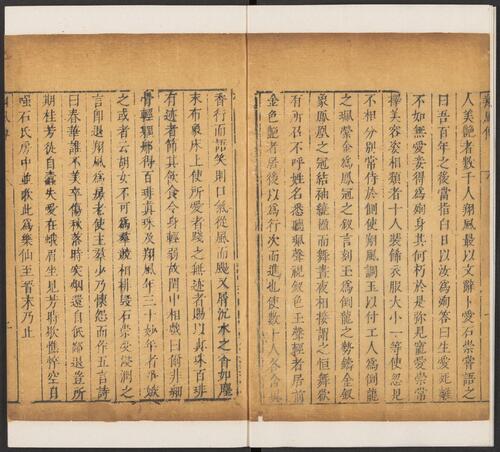 人美艷者數千人翔風最以文辭卜愛石崇嘗語之
曰吾百年之後當指白日以汝為殉答曰生愛死離
不如無愛妾得為殉身其何朽於是彌見寵愛崇常
擇美容姿相類者十人裝飾衣服大小一等使忽見
不相分別常侍於側使翔風調玉以付工人為倒龍
之珮縈金為鳳冠之釵言刻玉為倒龍之勢鑄金釵
象鳳凰之冠結袖繞楹而舞晝夜相接謂之恒舞歡
有所召不呼姓名悉聽珮聲視釵色玉聲輕者居前
金色艷者居後以為行次而進也使數十人各含異
香行而語笑則口氣從風而颺又屑沉水之香如塵
末布象床上使所愛者踐之無迹者賜以真珠百琲
有迹者節其飲食令身輕弱故閨中相戲曰爾非細
骨輕軀那得百琲真珠及翔風年三十妙年者爭嫉
之或者云胡女不可為羣競相排毀石崇受浸潤之
言即退翔風為房老使主羣少乃懷怨而作五言詩
曰春華誰不羨卒傷秋落時突烟還自低鄙退豈所
期桂芳徒自蠹失愛在蛾眉坐見芳時歇憔悴空自
嗤石氏房中並歌此為樂仙至晉末乃止